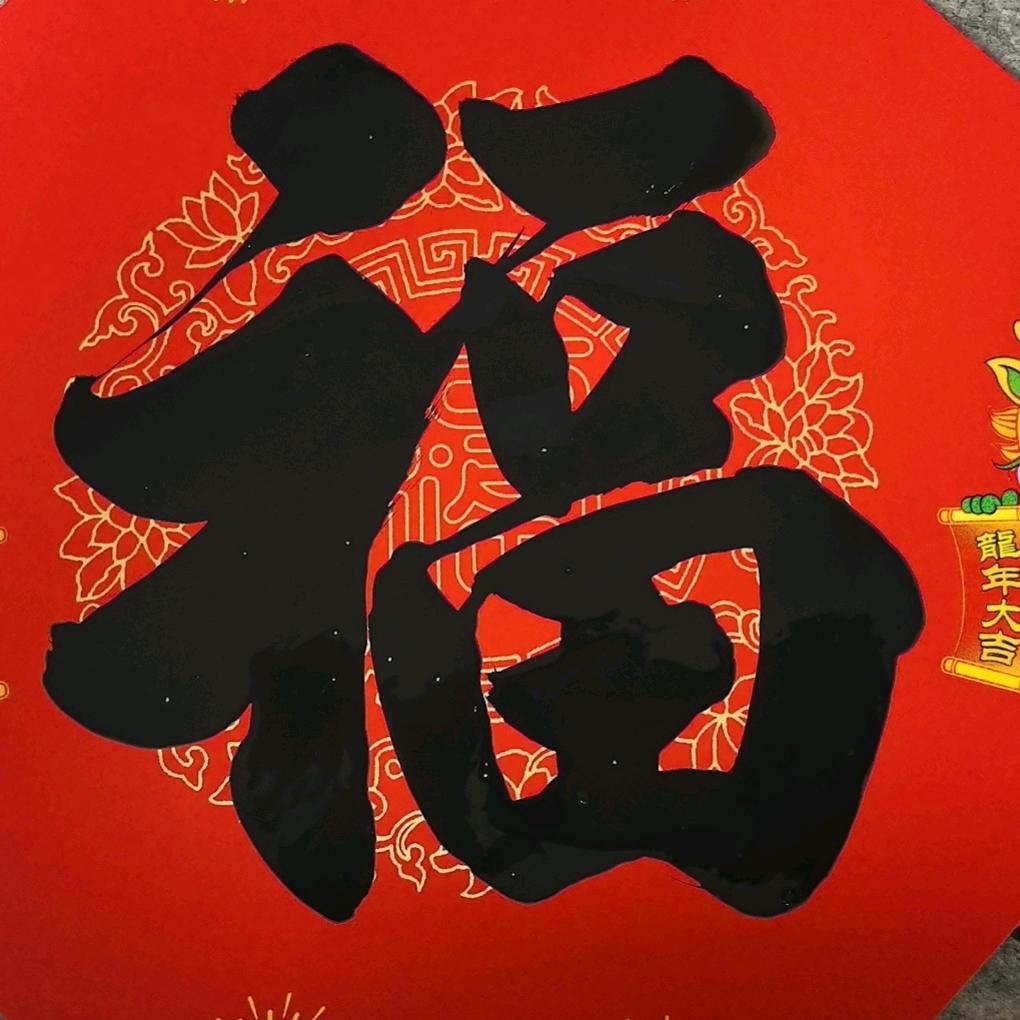 福
龍年大吉